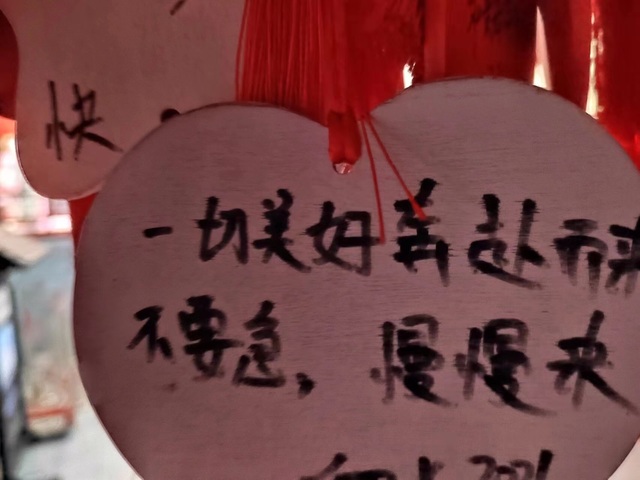 快
一切美好奔赴而来
不要急，慢慢来